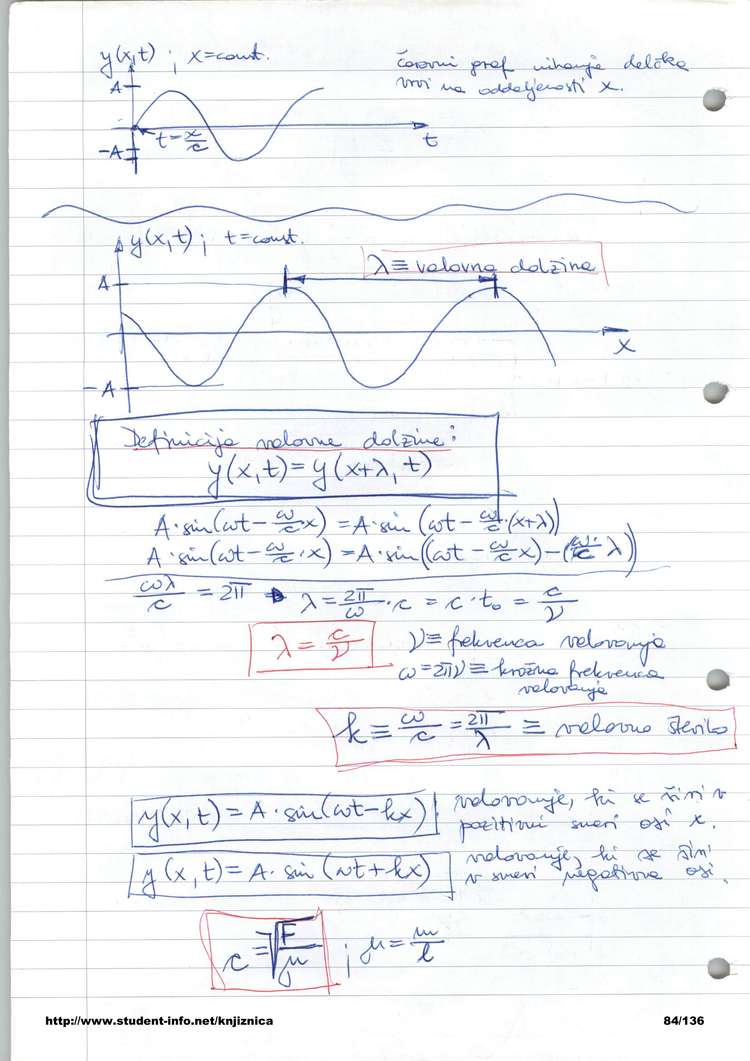 y(x,t) ; x=const.
časovni graf nihanja delčka
vrvi na oddaljenosti x.
A
t=x/c
t
-A
y(x,t) ; t=const.
λ ≡ valovna dolžina
A
x
-A
Definicija valovne dolžine:
y(x,t) = y(x+λ, t)
A·sin(ωt - ω/c x) = A·sin(ωt - ω/c·(x+λ))
A·sin(ωt - ω/c·x) = A·sin((ωt - ω/c x) - (ω/c λ))
ωλ/c = 2π → λ = 2π/ω · c = c·t₀ = c/ν
λ = c/ν
ν ≡ frekvenca valovanja
ω = 2πν ≡ krožna frekvenca
valovanja
k ≡ ω/c = 2π/λ ≡ valovno število
y(x,t) = A·sin(ωt-kx)
valovanje, ki se širi v
pozitivni smeri osi x.
y(x,t) = A·sin(ωt+kx)
valovanje, ki se širi
v smeri negativne osi.
c = √F/μ ; μ = m/l
http://www.student-info.net/knjiznica
84/136